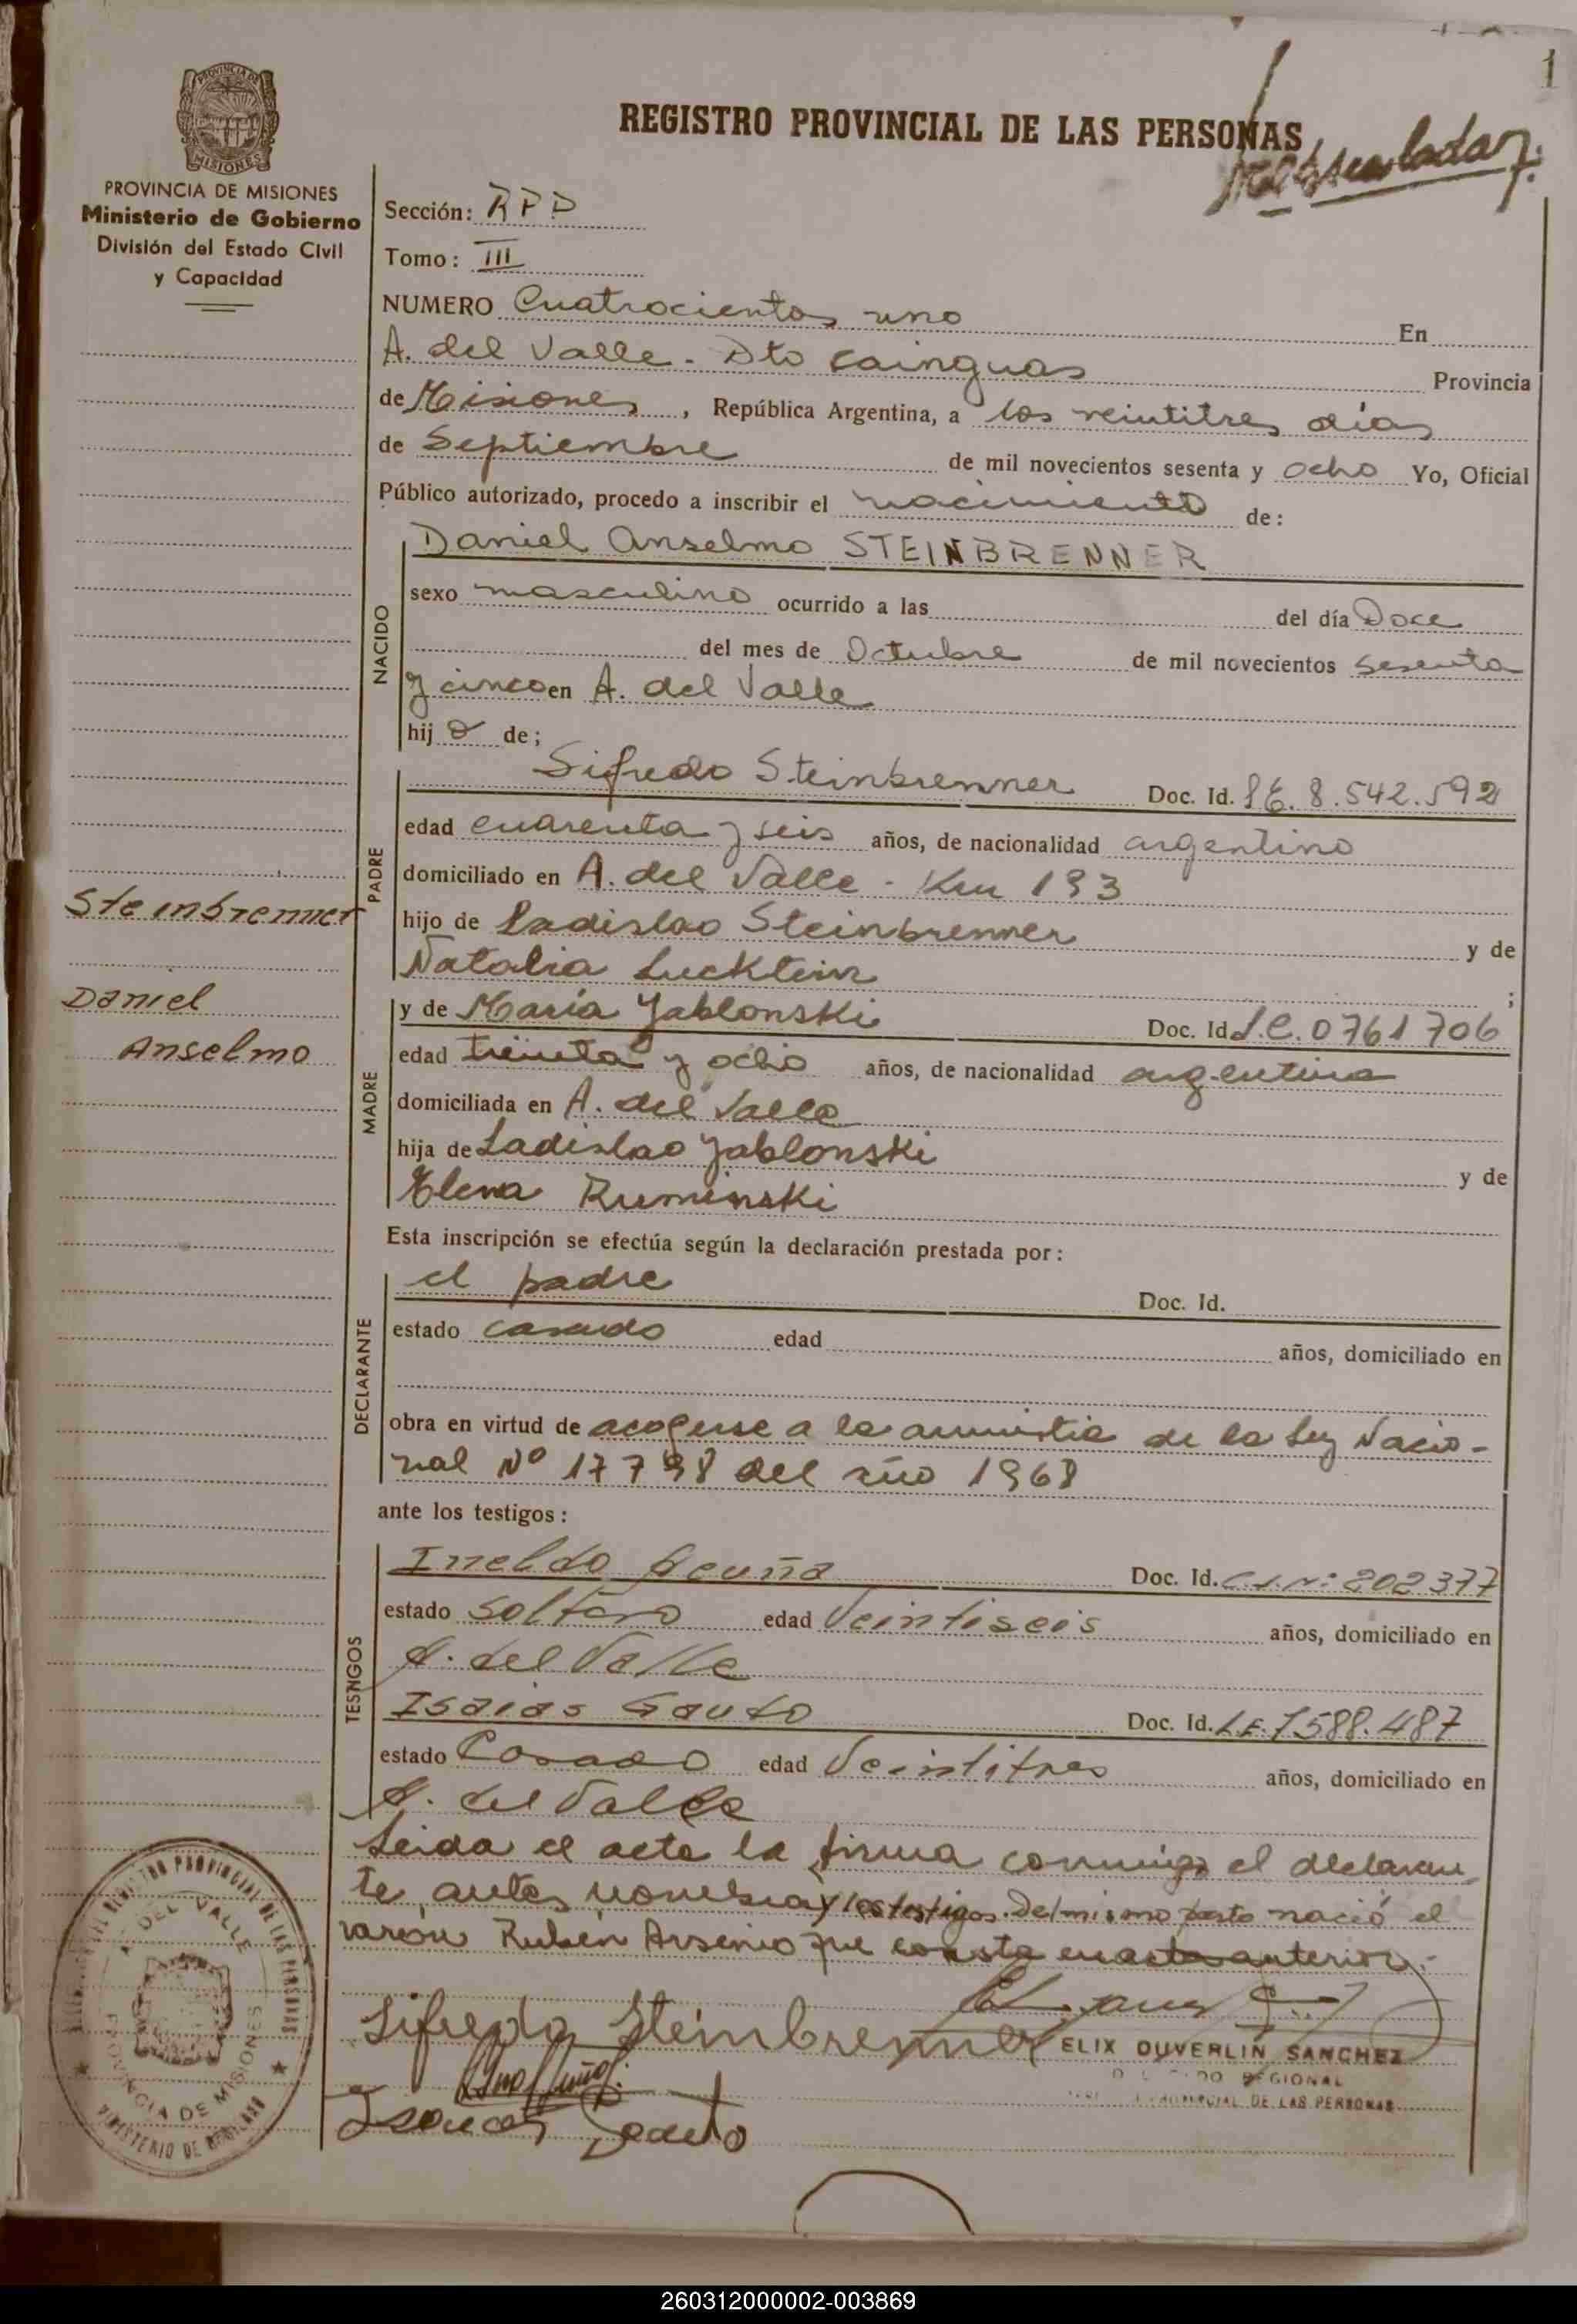 1
REGISTRO PROVINCIAL DE LAS PERSONAS
PROVINCIA DE MISIONES
Ministerio de Gobierno
División del Estado Civil
y Capacidad
Sección: RPP
Tomo: III
NUMERO Cuatrocientos uno En
A. del Valle - Dto Cainguas Provincia
de Misiones, República Argentina, a los veintitres días
de Septiembre de mil novecientos sesenta y ocho Yo, Oficial
Público autorizado, procedo a inscribir el nacimiento de:
NACIDO
Daniel Anselmo STEINBRENNER
sexo masculino ocurrido a las del día Doce
del mes de Octubre de mil novecientos sesenta
y cinco en A. del Valle
hijo de;
PADRE
Sifredo Steinbrenner Doc. Id. L.E. 8.542.592
edad cuarenta y seis años, de nacionalidad argentino
domiciliado en A. del Valle - Km 193
hijo de Ladislao Steinbrenner y de
Natalia Lucktein ;
Steinbrenner
Daniel
Anselmo
MADRE
y de María Yablonski Doc. Id. L.C. 0761706
edad treinta y ocho años, de nacionalidad argentina
domiciliada en A. del Valle
hija de Ladislao Yablonski y de
Elena Ruminski
Esta inscripción se efectúa según la declaración prestada por:
DECLARANTE
el padre Doc. Id.
estado casado edad años, domiciliado en
obra en virtud de acogerse a la amnistia de la Ley Nacio-
nal Nº 17798 del año 1968
ante los testigos:
TESTIGOS
Ineldo Acuña Doc. Id. C.I.Nº: 202377
estado soltero edad Veintiseis años, domiciliado en
A. del Valle
Isaias Gauto Doc. Id. L.E. 7588.487
estado Casado edad Veintitres años, domiciliado en
A. del Valle
Leida el acta la firma conmigo el declaran
te antes nombra y los testigos. Del mismo parto nació el
varón Rubén Arsenio que consta en acta anterior.-
Sifredo Steinbrenner
ELIX DUVERLIN SANCHEZ
REGIONAL
DE LAS PERSONAS
Isaias Gauto
REGISTRO PROVINCIAL DE LAS PERSONAS
A. DEL VALLE
PROVINCIA DE MISIONES
MINISTERIO DE
260312000002-003869